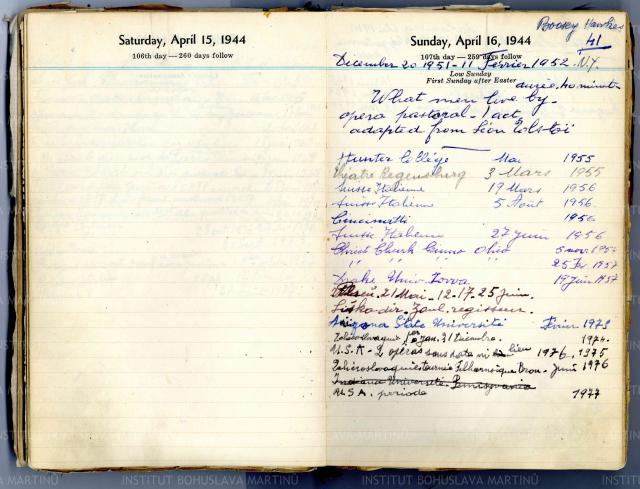 Saturday, April 15, 1944
106th day — 260 days follow
Boosey Hawkes
41
Sunday, April 16, 1944
107th day — 259 days follow
December 20 1951 - 11 Février 1952 - N.Y.
Low Sunday
First Sunday after Easter
durée 40 minutes
What men live by -
opera pastoral - 1 act,
adapted from Léon Tolstoï
Hunter Collège Mai 1955
Théatre Regensburg 3 Mars 1955
Suisse Italienne 19 Mars 1956
Suisse Italienne 5 Août 1956.
Cincinatti 1956.
Suisse Italienne 27 juin 1956
Christ Church Ohio 6 nov. 1956
" " " 25 Fev. 1957
Drake Univ. Iowa 19 Juin 1957
21 Mai - 12-17. 25 Juin.
Liška dir. Zaul. regisseur.
Arizona State Université Février 1973
Tchécoslovaquie 1er Jan. 31 Décembre. 1974.
U.S.A - 2 opéras sous note lieu 1976. 1975
Tchécoslovaquie tournée Filharmonique Brno - Juin 1976
Indiana Université Pennsylvania
U.S.A. periode 1977
INSTITUT BOHUSLAVA MARTINŮ